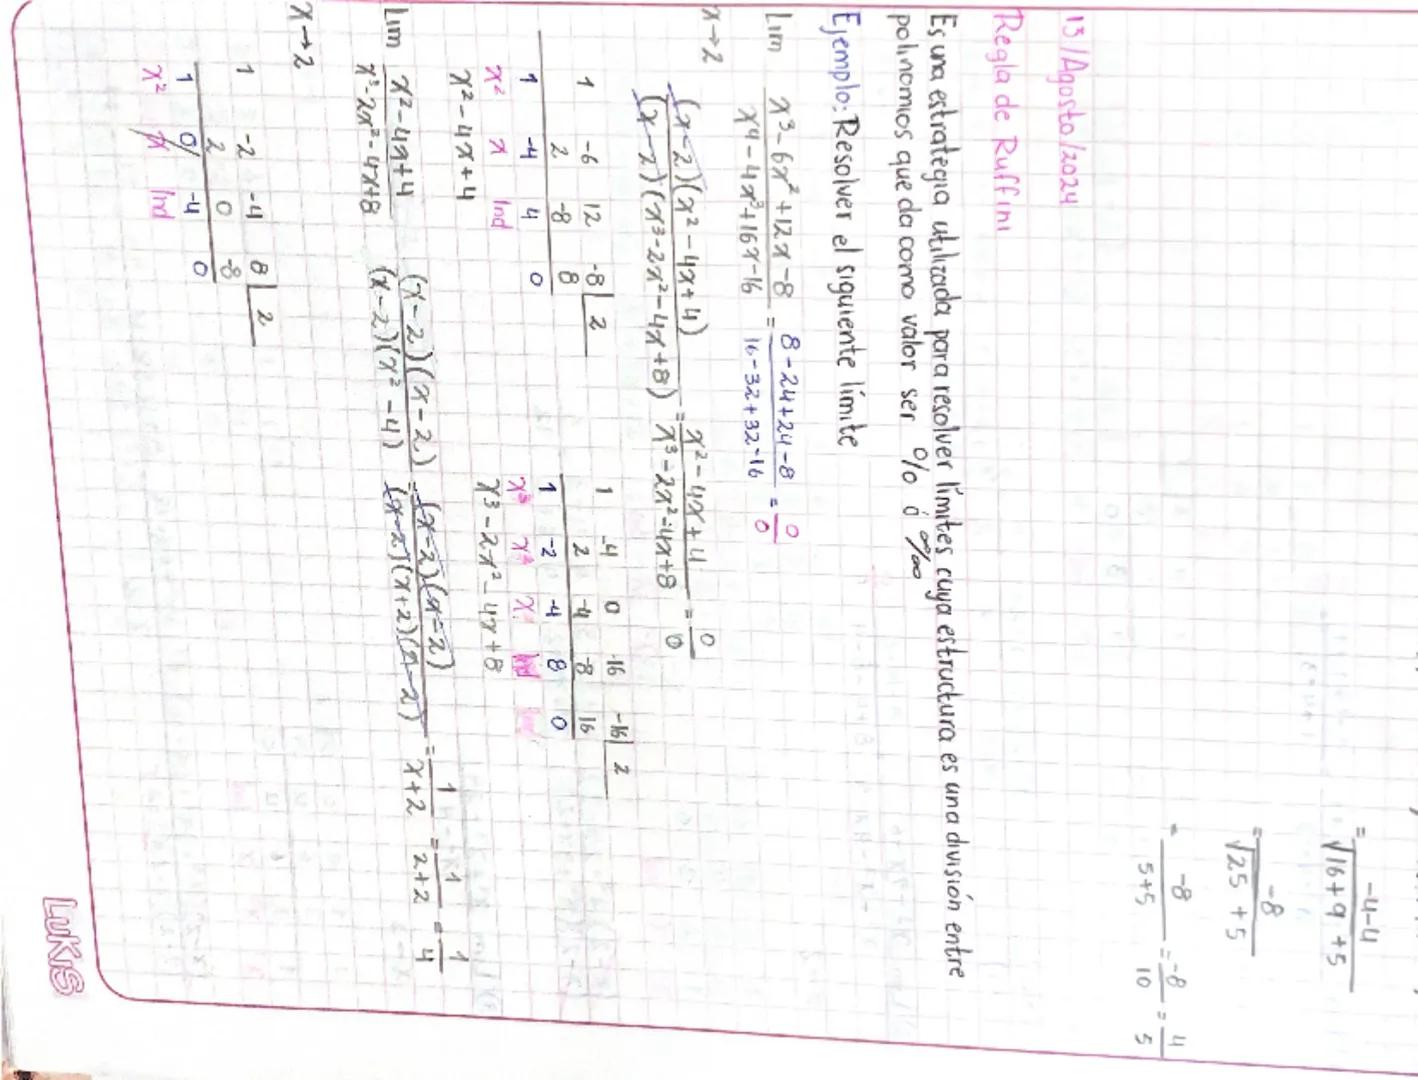 = -4-4 / √16+9 +5
= -8 / √25 +5
= -8 / 5+5 = -8 / 10 = 4 / 5
13/Agosto/2024
Regla de Ruffini
Es una estrategia utilizada para resolver límites cuya estructura es una división entre
polinomios que da como valor ser 0/0 ó ∞/∞
Ejemplo: Resolver el siguiente límite
Lim x³-6x²+12x-8 / x⁴-4x³+16x-16 = 8-24+24-8 / 16-32+32-16 = 0/0
x→2
(x-2)(x²-4x+4) / (x-2)(x³-2x²-4x+8) = x²-4x+4 / x³-2x²-4x+8 = 0/0
1 -6 12 -8 | 2
2 -8 8
1 -4 4 0
x² x Ind
x²-4x+4
1 -4 0 16 -16 | 2
2 -4 -8 16
1 -2 -4 8 0
x³ x² x Ind
x³-2x²-4x+8
Lim x²-4x+4 / x³-2x²-4x+8 (x-2)(x-2) / (x-2)(x²-4) = (x-2)(x-2) / (x-2)(x+2)(x-2) = 1 / x+2 = 1 / 2+2 = 1/4
x→2
1 -2 -4 8 | 2
2 0 -8
1 0 -4 0
x² x Ind
LUKIS